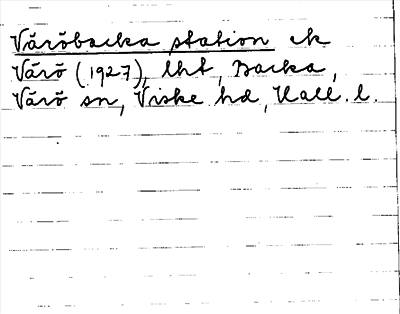 Väröbacka station ek
Värö (1927), lht, Backa,
Värö sn, Viske hd, Hall. l.